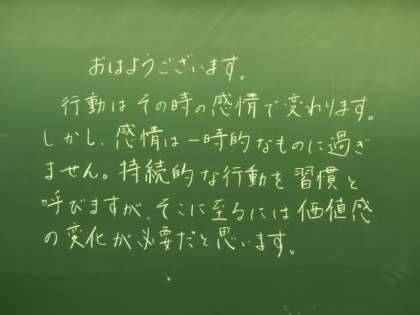 おはようございます。
行動はその時の感情で変わります。
しかし、感情は一時的なものに過ぎ
ません。持続的な行動を習慣と
呼びますが、そこに至るには価値感
の変化が必要だと思います。